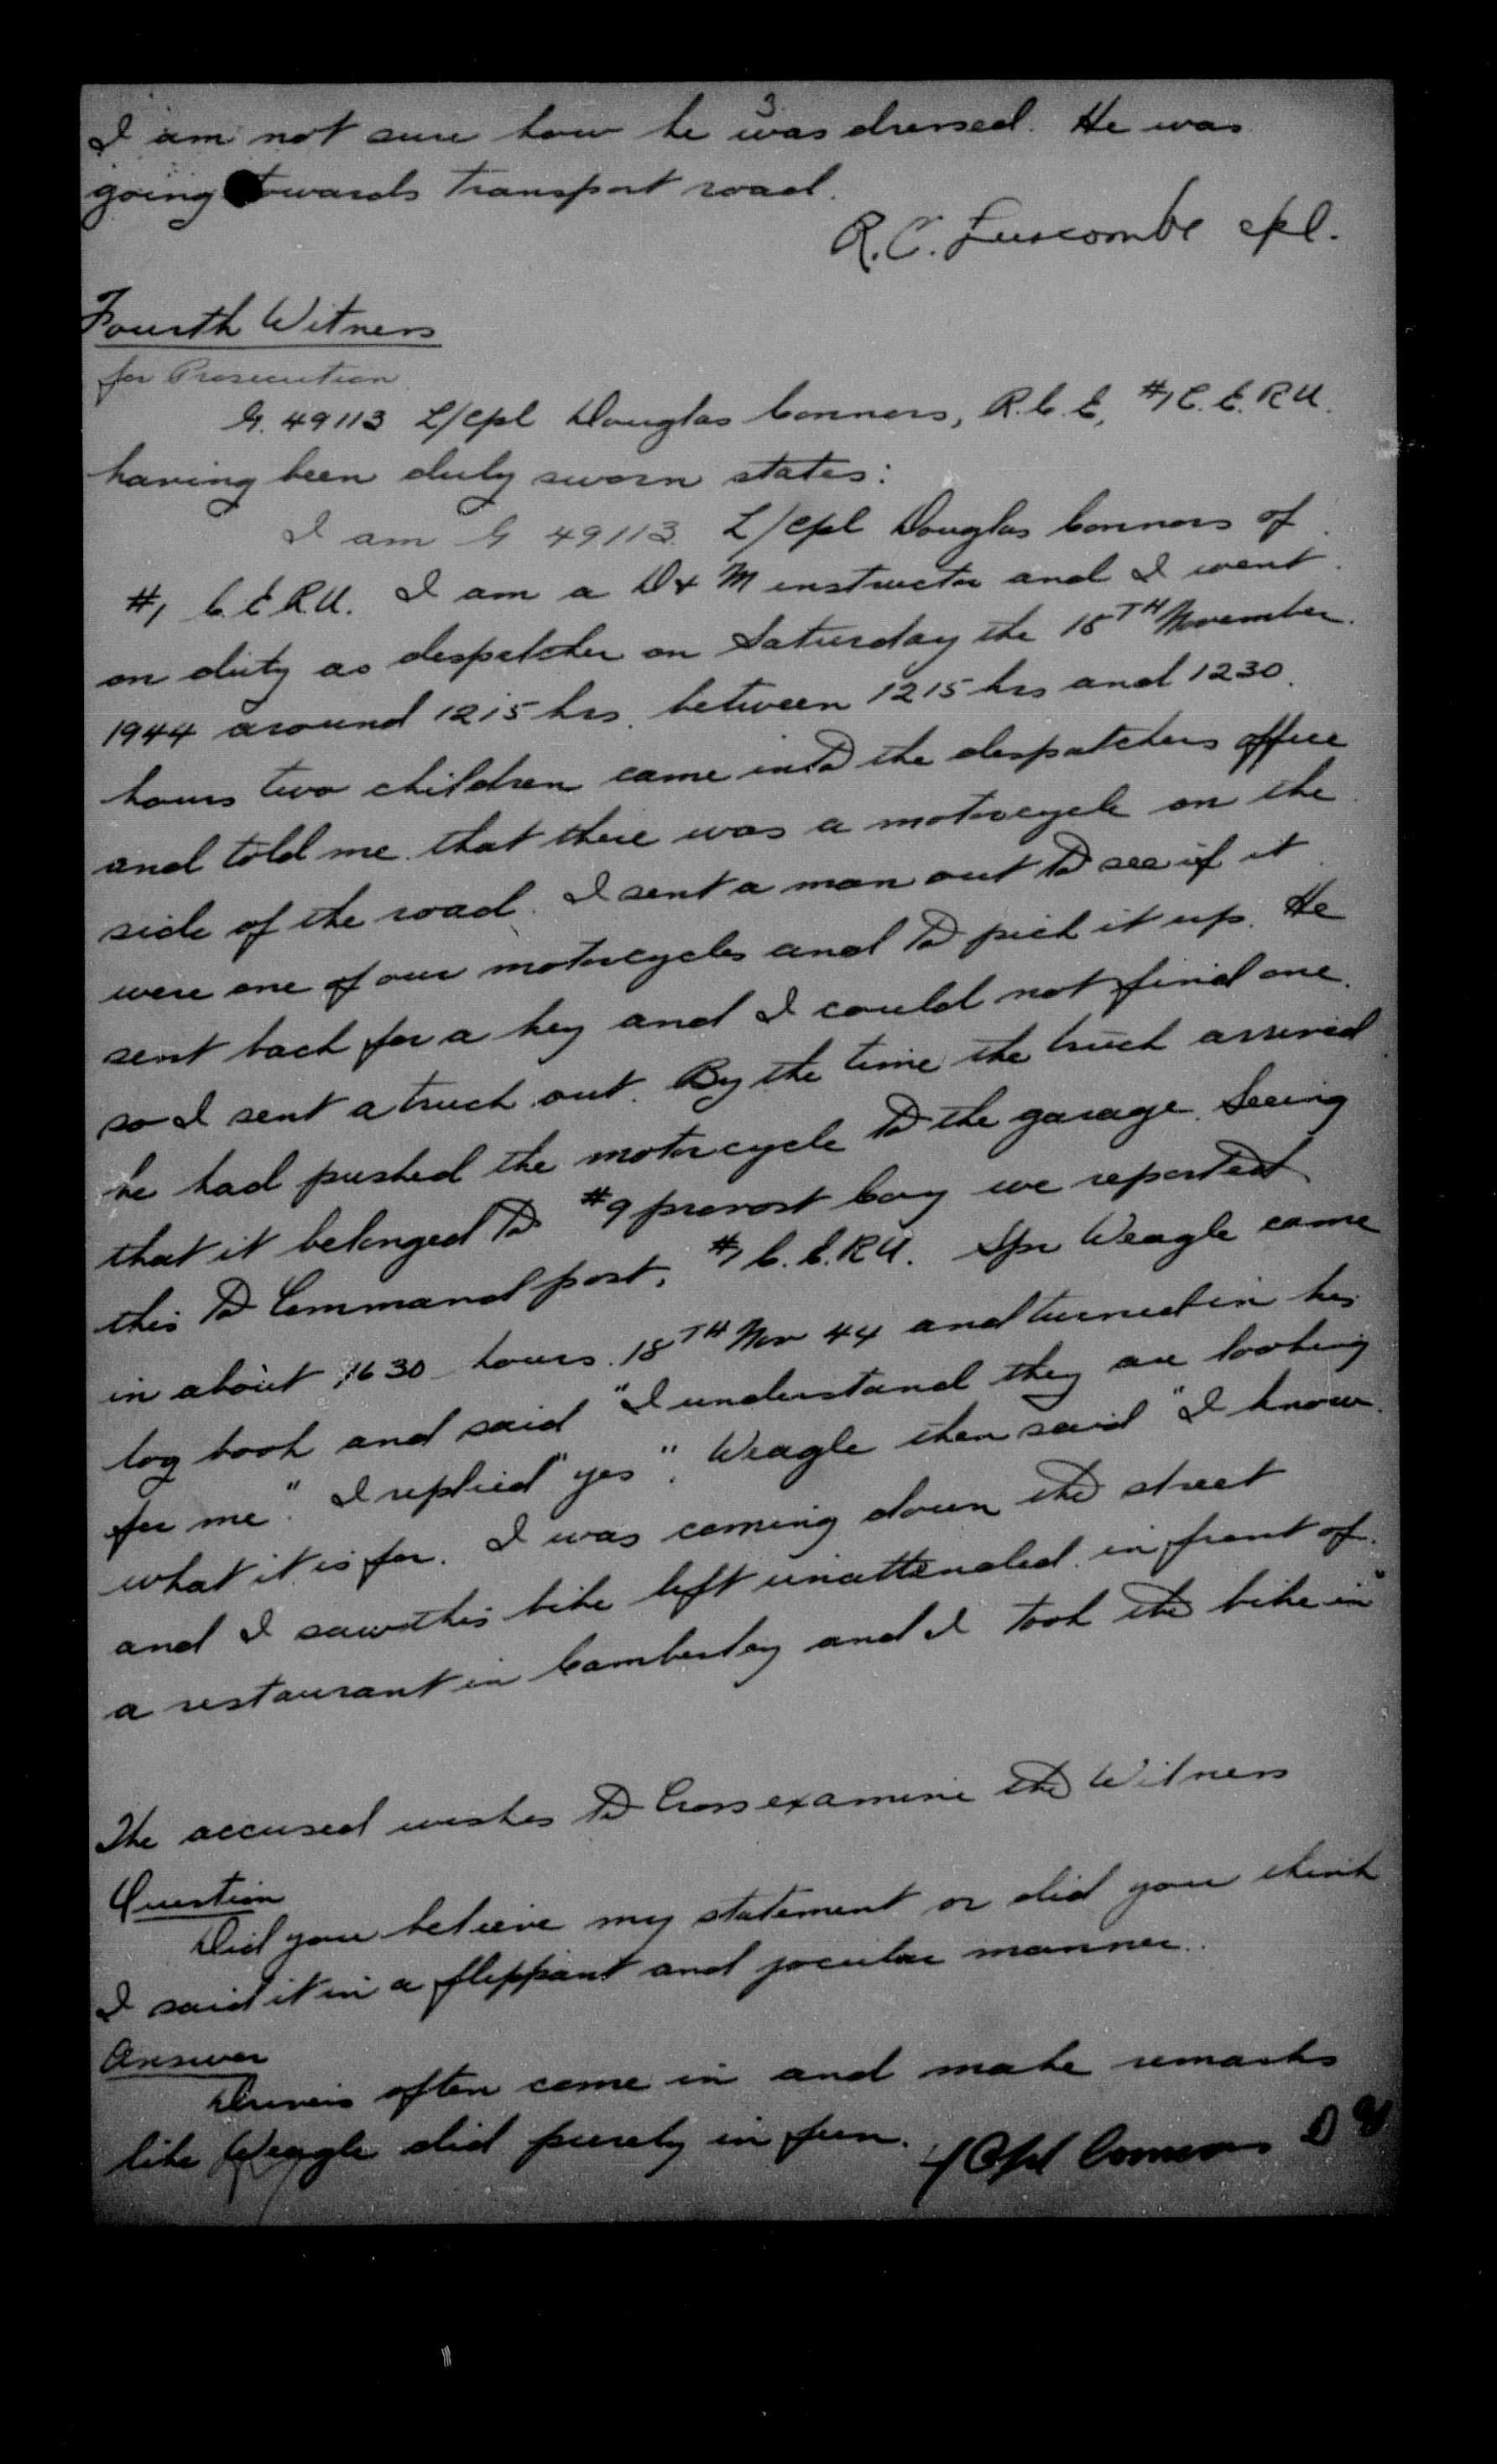 3.
I am not sure how he was dressed. He was
going towards transport road.
R. C. Luscombe cpl.
Fourth Witness
for Prosecution
G. 49113 L/Cpl Douglas Connors, R.C.E, #1 C.E.R.U.
having been duly sworn states:
I am G 49113 L/Cpl Douglas Connors of
#1 C.E.R.U. I am a D & M instructor and I went
on duty as despatcher on Saturday the 18TH November
1944 around 1215 hrs. between 1215 hrs and 1230
hours two children came into the despatchers office
and told me that there was a motorcycle on the
side of the road. I sent a man out to see if it
were one of our motorcycles and to pick it up. He
sent back for a key and I could not find one.
so I sent a truck out. By the time the truck arrived
he had pushed the motorcycle to the garage. Seeing
that it belonged to #9 provost Coy we reported
this to Command post, #1 C.E.R.U. Spr Weagle came
in about 1630 hours 18TH Nov 44 and turned in his
log book and said "I understand they are looking
for me". I replied "yes". Weagle then said "I know
what it is for. I was coming down the street
and I saw this bike left unattended in front of
a restaurant in Camberley and I took the bike in"
The accused wishes to Cross examine the Witness
Question
Did you believe my statement or did you think
I said it in a flippant and jocular manner.
Answer
Drivers often come in and make remarks
like Weagle did purely in fun.
L/Cpl Connors D